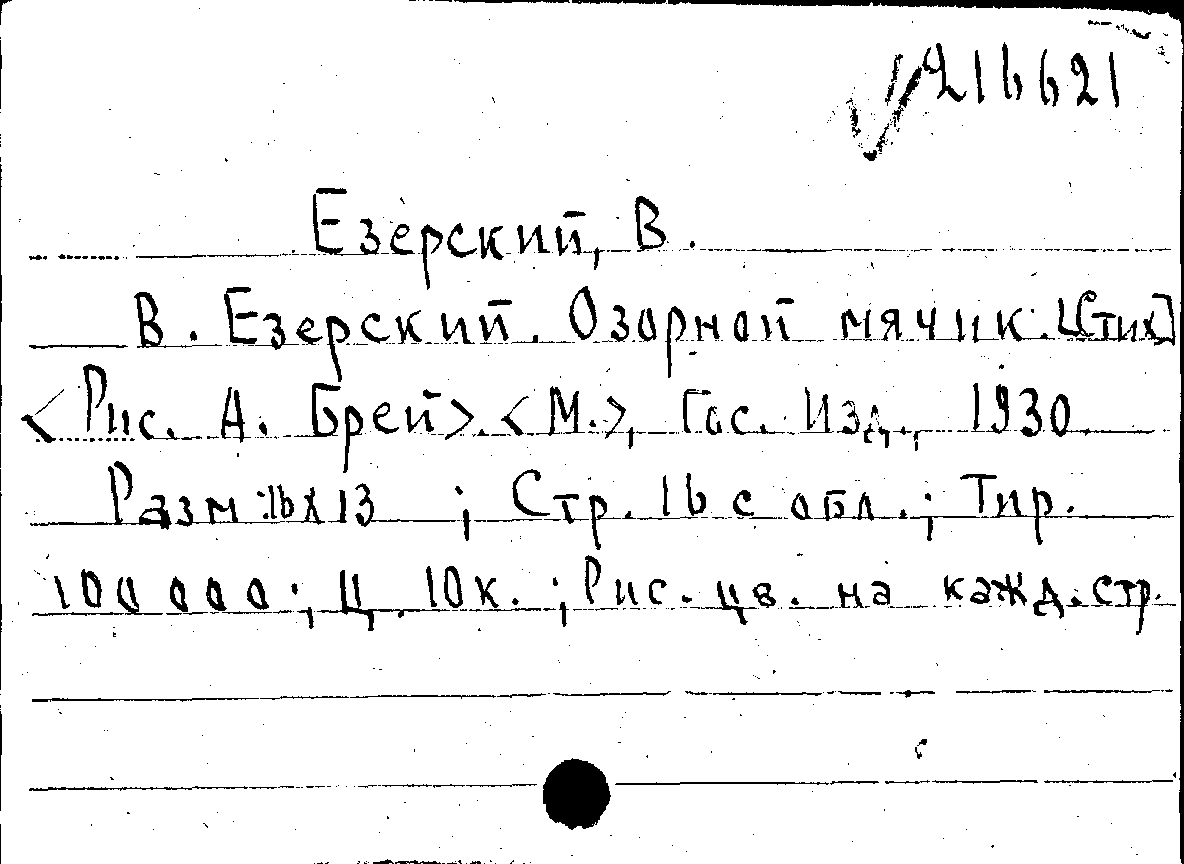 √216621
Езерский, В.
В. Езерский. Озорной мячик. [Стих]
<Рис. А. Брей>. <М.>, Гос. Изд., 1930.
Разм: 16х13 ; Стр. 16 с обл. ; Тир.
100 000 ; Ц. 10к. ; Рис. цв. на кажд. стр.